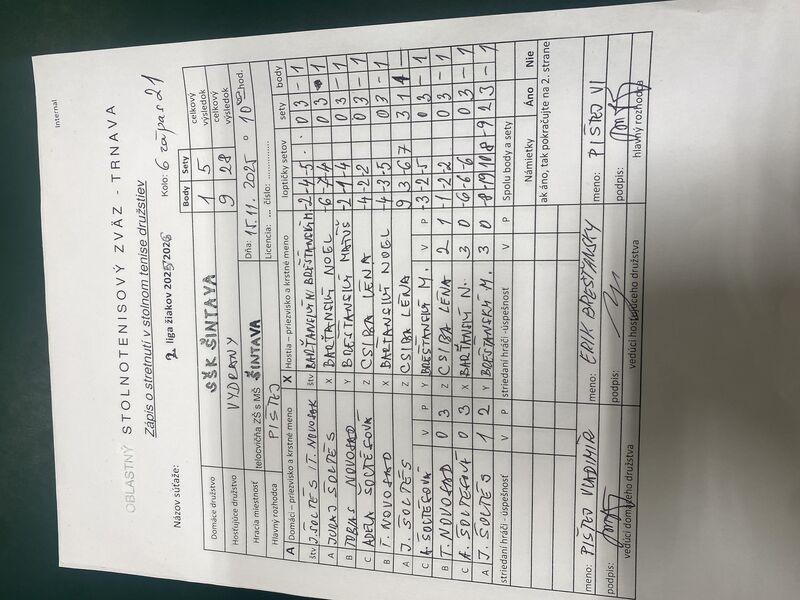 Internal
OBLASTNÝ STOLNOTENISOVÝ ZVÄZ - TRNAVA
Zápis o stretnutí v stolnom tenise družstiev
Názov súťaže: 2 liga žiakov 2025/2026 Kolo: 6 zápas 21
Body Sety
Domáce družstvo OŠK ŠINTAVA 1 5 celkový výsledok
Hosťujúce družstvo VYDRANY 9 28 celkový výsledok
Hracia miestnosť telocvičňa ZŠ s MŠ ŠINTAVA Dňa: 15.11. 2025 o 10 00 hod.
Hlavný rozhodca PIŠTEJ Licencia: ... číslo: ...............
A Domáci – priezvisko a krstné meno X Hostia – priezvisko a krstné meno loptičky setov sety body
štv J. ŠOLTÉS / T. NOVOSAD štv -2 -4 -5 0 3 - 1
A JURAJ ŠOLTÉS X BARTANSKÝ NOEL -6 -7 -4 0 3 - 1
B TOBIAS NOVOSAD Y BREŠTANSKÝ MATÚŠ -2 -1 -4 0 3 - 1
C ADELA ŠOLTÉSOVÁ Z CSIBA LÉNA -4 -2 -2 0 3 - 1
B T. NOVOSAD X BARTANSKÝ NOEL -4 -3 -5 0 3 - 1
A J. ŠOLTÉS Z CSIBA LÉNA 9 3 -6 7 3 1 1 -
C A. ŠOLTÉSOVÁ V P Y BREŠTANSKÝ M. V P -3 -2 -5 0 3 - 1
B T. NOVOSAD 0 3 Z CSIBA LÉNA 2 1 -1 -2 -2 0 3 - 1
C A. ŠOLTÉSOVÁ 0 3 X BARTANSKÝ N. 3 0 -6 -6 -6 0 3 - 1
A J. ŠOLTÉS 1 2 Y BREŠTANSKÝ M. 3 0 2 3 - 1
striedaní hráči -úspešnosť V P striedaní hráči -úspešnosť V P Spolu body a sety
Námietky Áno Nie
ak áno, tak pokračujte na 2. strane
meno: PIŠTEJ VLADIMÍR meno: ERIK BREŠTANSKÝ meno: PIŠTEJ Vl
podpis: podpis: podpis:
vedúci domáceho družstva vedúci hosťujúceho družstva hlavný rozhodca